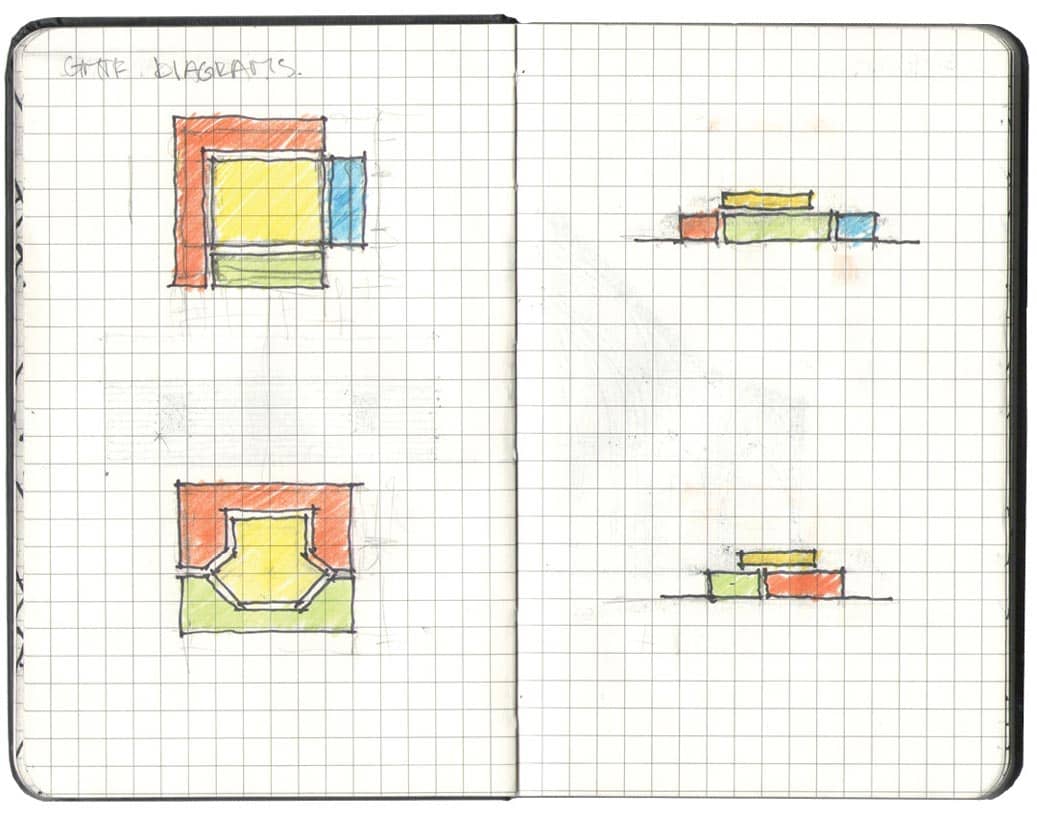 GMTF DIAGRAMS.